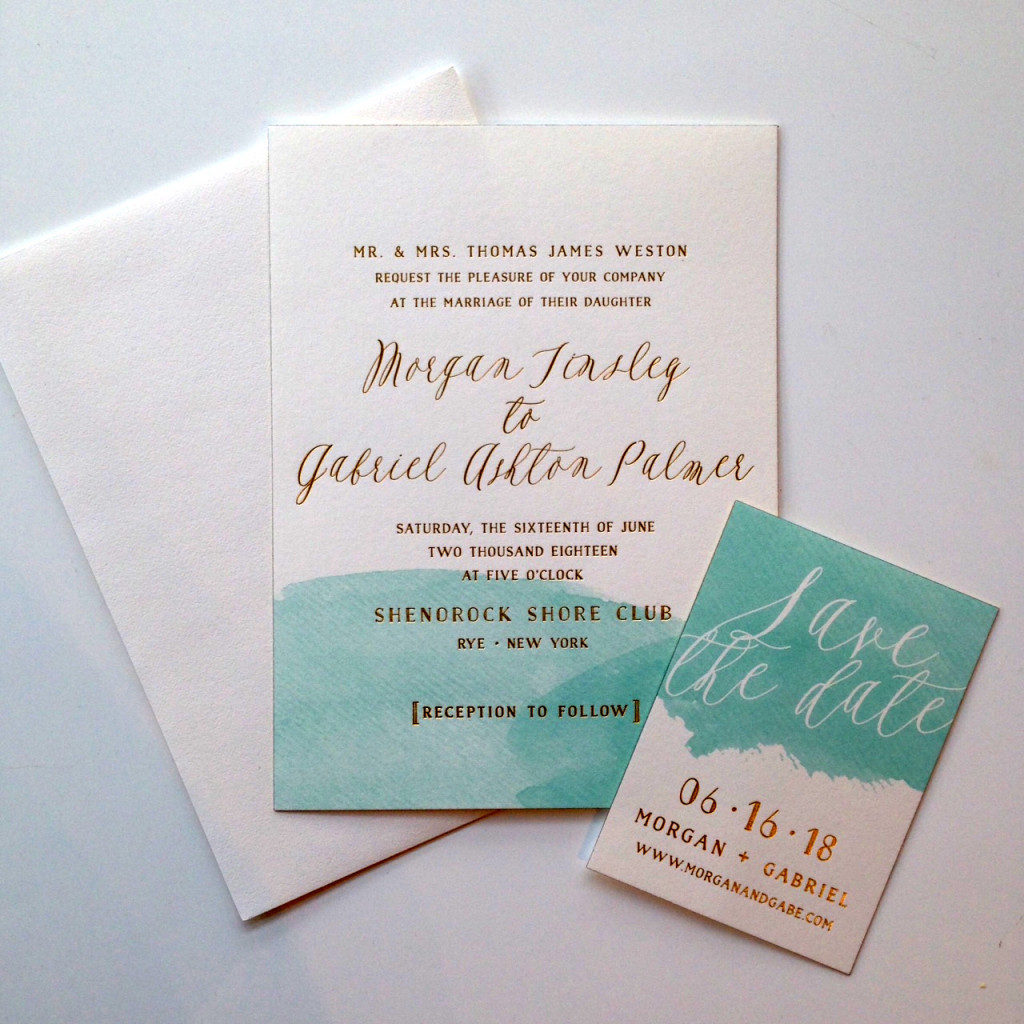 MR. & MRS. THOMAS JAMES WESTON
REQUEST THE PLEASURE OF YOUR COMPANY
AT THE MARRIAGE OF THEIR DAUGHTER
Morgan Tinsley
to
Gabriel Ashton Palmer
SATURDAY, THE SIXTEENTH OF JUNE
TWO THOUSAND EIGHTEEN
AT FIVE O'CLOCK
SHENOROCK SHORE CLUB
RYE • NEW YORK
[RECEPTION TO FOLLOW]
Save
the date
06 • 16 • 18
MORGAN + GABRIEL
WWW.MORGANANDGABE.COM